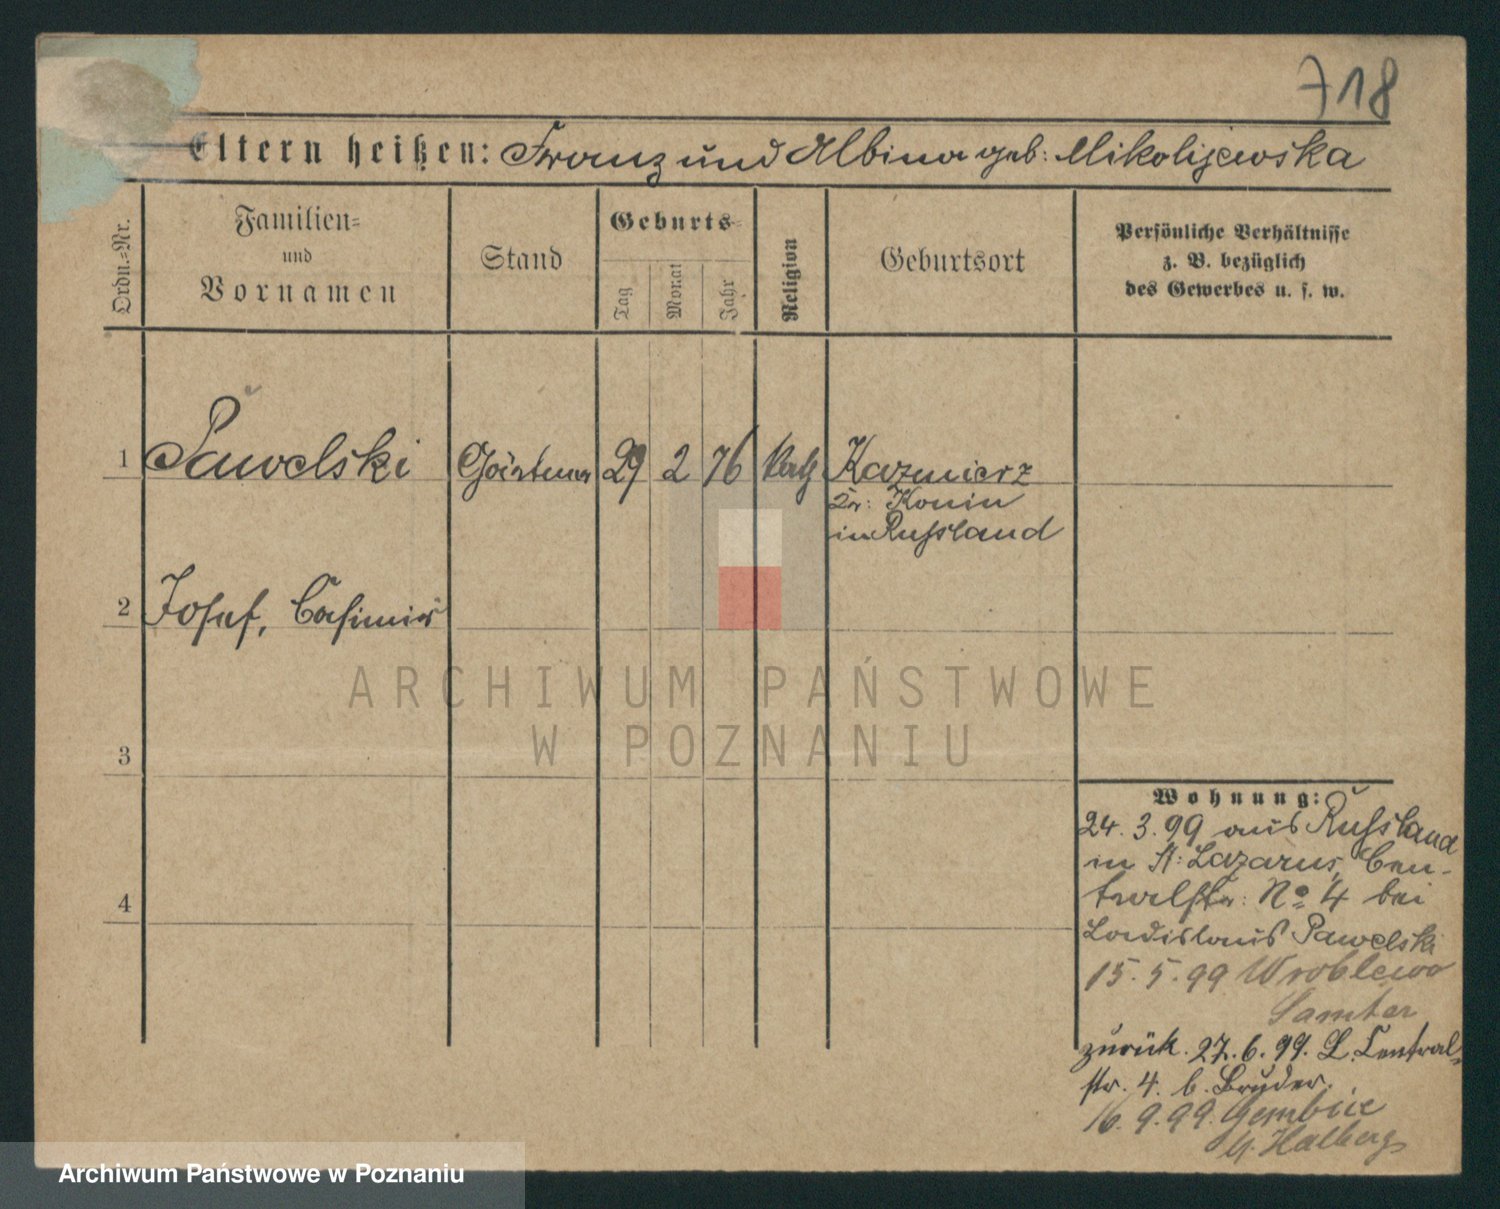 718
Eltern heißen: Franz und Albina geb: Mikolijewska
Ordn.=Nr.
Familien=
und
Vornamen
Stand
Geburts=
Tag
Monat
Jahr
Religion
Geburtsort
Persönliche Verhältnisse
z. B. bezüglich
des Gewerbes u. s. w.
1 Pawelski Gärtner 29 2 76 kath Kazmierz
Kr: Konin
in Russland
2 Josef, Casimir
3
4
Wohnung:
24. 3. 99 aus Russland
in St: Lazarus, Cen-
tralstr: No 4 bei
Ladislaus Pawelski
15. 5. 99 Wroblewo
Samter
zurück. 27. 6. 99. L. Central-
str. 4. b. Bruder.
16. 9. 99. Gembice
ARCHIWUM PAŃSTWOWE
W POZNANIU
Archiwum Państwowe w Poznaniu